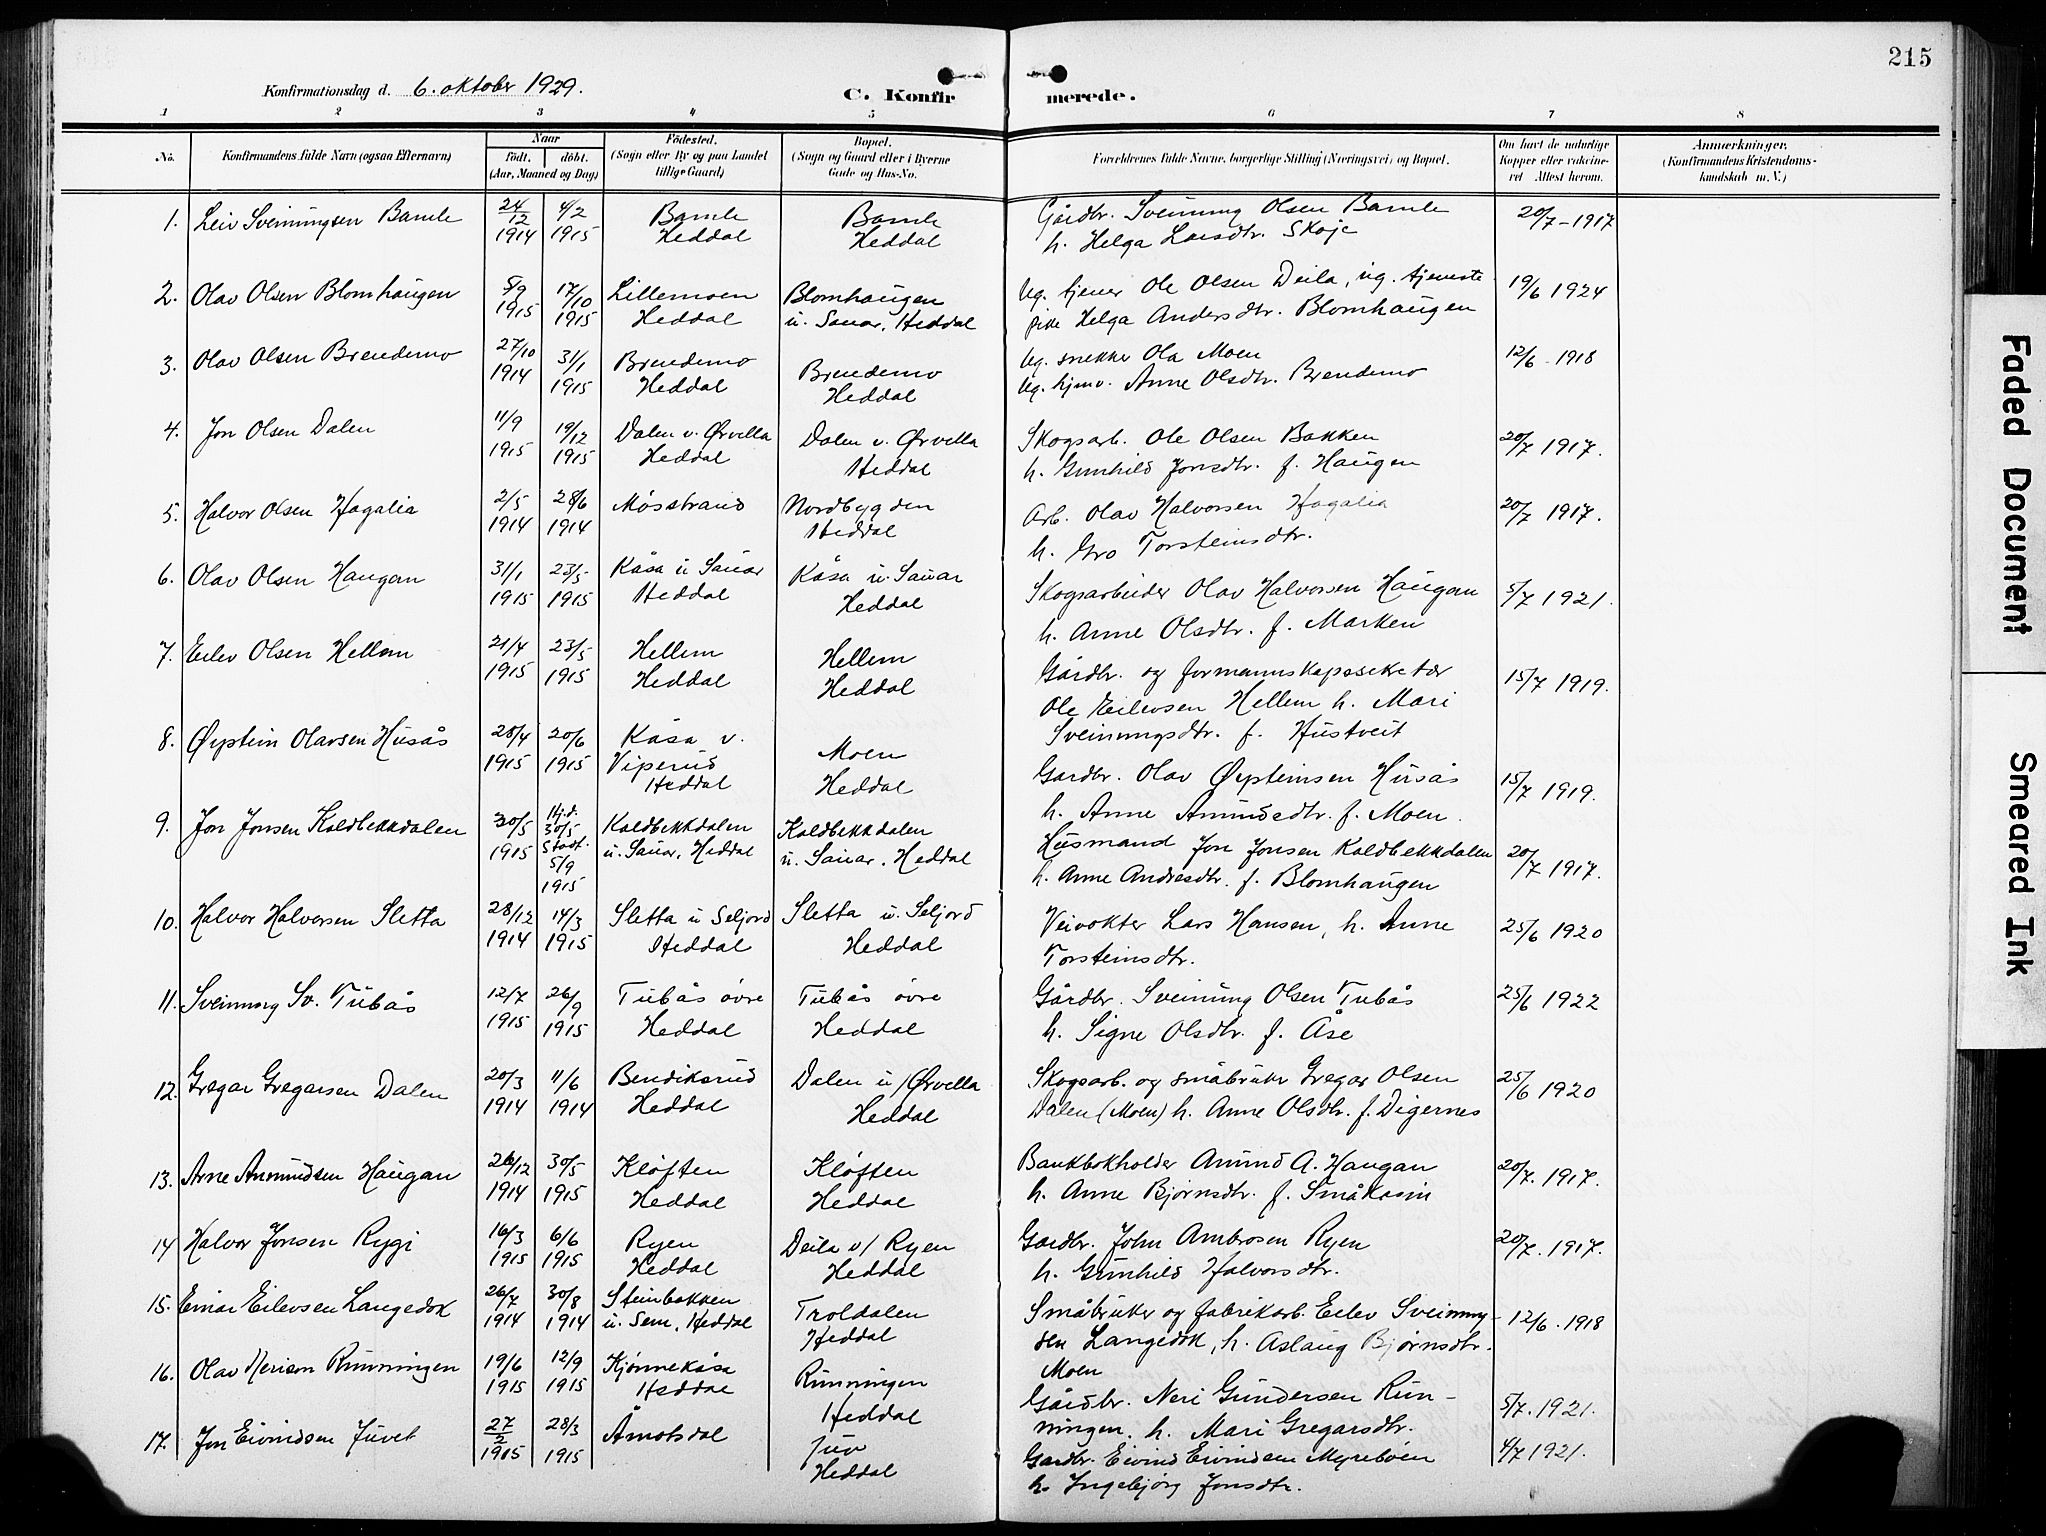 215
Konfirmationsdag d. 6. oktober 1929.
C. Konfirmerede.
1 2 3 4 5 6 7 8
No.
Konfirmandens fulde Navn (ogsaa Efternavn)
Naar
födt. döbt.
(Aar, Maaned og Dag)
Födested.
(Sogn eller By og paa Landet
tillige Gaard)
Bopæl.
(Sogn og Gaard eller i Byerne
Gade og Hus-No.
Forældrenes fulde Navne, borgerlige Stilling (Næringsvei) og Bopæl.
Om havt de naturlige
Kopper eller vakcine-
ret Attest herom.
Anmærkninger.
(Konfirmandens Kristendoms-
kundskab m. V.)
1. Leiv Sveinungsen Bamle 24/12 1914 4/2 1915 Bamle Heddal Bamle Heddal Gårdbr. Sveinung Olsen Bamle 20/7-1917
h. Helga Larsdtr. Skoje
2. Olav Olsen Blomhaugen 5/9 1915 17/10 1915 Lillemoen Heddal Blomhaugen u. Sauar, Heddal Ug. tjener Ole Olsen Deila, ug. tjeneste- 19/6 1924
pike Helga Andersdtr. Blomhaugen
3. Olav Olsen Brendemo 27/10 1914 31/1 1915 Brendemo Heddal Brendemo Heddal Ug. snekker Ola Moen 12/6-1918
Ug. hjmv. Anne Olsdtr. Brendemo
4. Jon Olsen Dalen 11/9 1915 19/12 1915 Dalen v. Ørvella Heddal Dalen v. Ørvella Heddal Skogsarb. Ole Olsen Bakken 20/7 1917.
h. Gunhild Jonsdtr. f. Haugen
5. Halvor Olsen Hagalia 2/5 1914 28/6 1914 Møsstrand Nordbygden Heddal Arb. Olav Halvorsen Hagalia 20/7 1917.
h. Gro Torsteinsdtr.
6. Olav Olsen Haugan 31/1 1915 23/5 1915 Kåsa u Sauar Heddal Kåsa u. Sauar Heddal Skogsarbeider Olav Halvorsen Haugan 5/7 1921.
h. Anne Olsdtr. f. Marken
7. Eilev Olsen Hellem 21/4 1915 23/5 1915 Hellem Heddal Hellem Heddal Gårdbr. og formannskapssekretær 15/7 1919.
Ole Eilevsen Hellem h. Mari
Sveinungsdtr. f. Hustveit
8. Øystein Olavsen Husås 28/4 1915 20/6 1915 Kåsa v. Viperud Heddal Moen Heddal Gardbr. Olav Øysteinsen Husås 15/7 1919.
h. Anne Amundsdtr. f. Moen.
9. Jon Jonsen Kaldbekkdalen 30/5 1915 Hj.d. 30/5 Stadf. 5/9 1915 Kaldbekkdalen u. Sauar, Heddal Kaldbekkdalen u. Sauar, Heddal Husmand Jon Jonsen Kaldbekkdalen 20/7 1917.
h. Anne Andresdtr. f. Blomhaugen
10. Halvor Halvorsen Sletta 28/12 1914 14/3 1915 Sletta u Seljord Heddal Sletta u. Seljord Heddal Veivokter Lars Hansen, h. Anne 25/6 1920
Torsteinsdtr.
11. Sveinung Sv. Tubås 12/7 1915 26/9 1915 Tubås øvre Heddal Tubås øvre Heddal Gårdbr. Sveinung Olsen Tubås 25/6 1922
h. Signe Olsdtr. f. Åse
12. Gregar Gregarsen Dalen 20/3 1914 11/6 1914 Bendiksrud Heddal Dalen u/Ørvella Heddal Skogsarb. og småbruker Gregar Olsen 25/6 1920
Dalen (Moen) h. Anne Olsdtr. f. Digernes
13. Arne Amundsen Haugan 26/12 1914 30/5 1915 Kløften Heddal Kløften Heddal Bankbokholder Amund A. Haugan 20/7. 1917.
h. Anne Bjørnsdtr. f. Småkasin
14 Halvor Jonsen Rygi 16/3 1915 6/6 1915 Ryen Heddal Deila v/ Ryen Heddal Gardbr. John Ambrosen Ryen 20/7. 1917.
h. Gunhild Halvorsdtr.
15. Einar Eilevsen Langedok 26/7 1914 30/8 1914 Steinbakken u. Sem, Heddal Troldalen Heddal Småbruker og fabrikarb. Eilev Sveinung- 12/6. 1918
sen Langedok, h. Aslaug Bjørnsdtr.
Moen
16. Olav Nerisen Runningen 19/6 1915 12/9 1915 Kjønnekåsa Heddal Runningen Heddal Gårdbr. Neri Gundersen Run- 5/7. 1921.
ningen, h. Mari Gregarsdtr.
17. Jon Eivindsen Juvet 27/2 1915 28/3 1915 Åmotsdal Juv Heddal Gardbr. Eivind Eivindsen Myrebøen 4/7 1921.
h. Ingebjørg Jonsdtr.
Faded Document
Smeared Ink